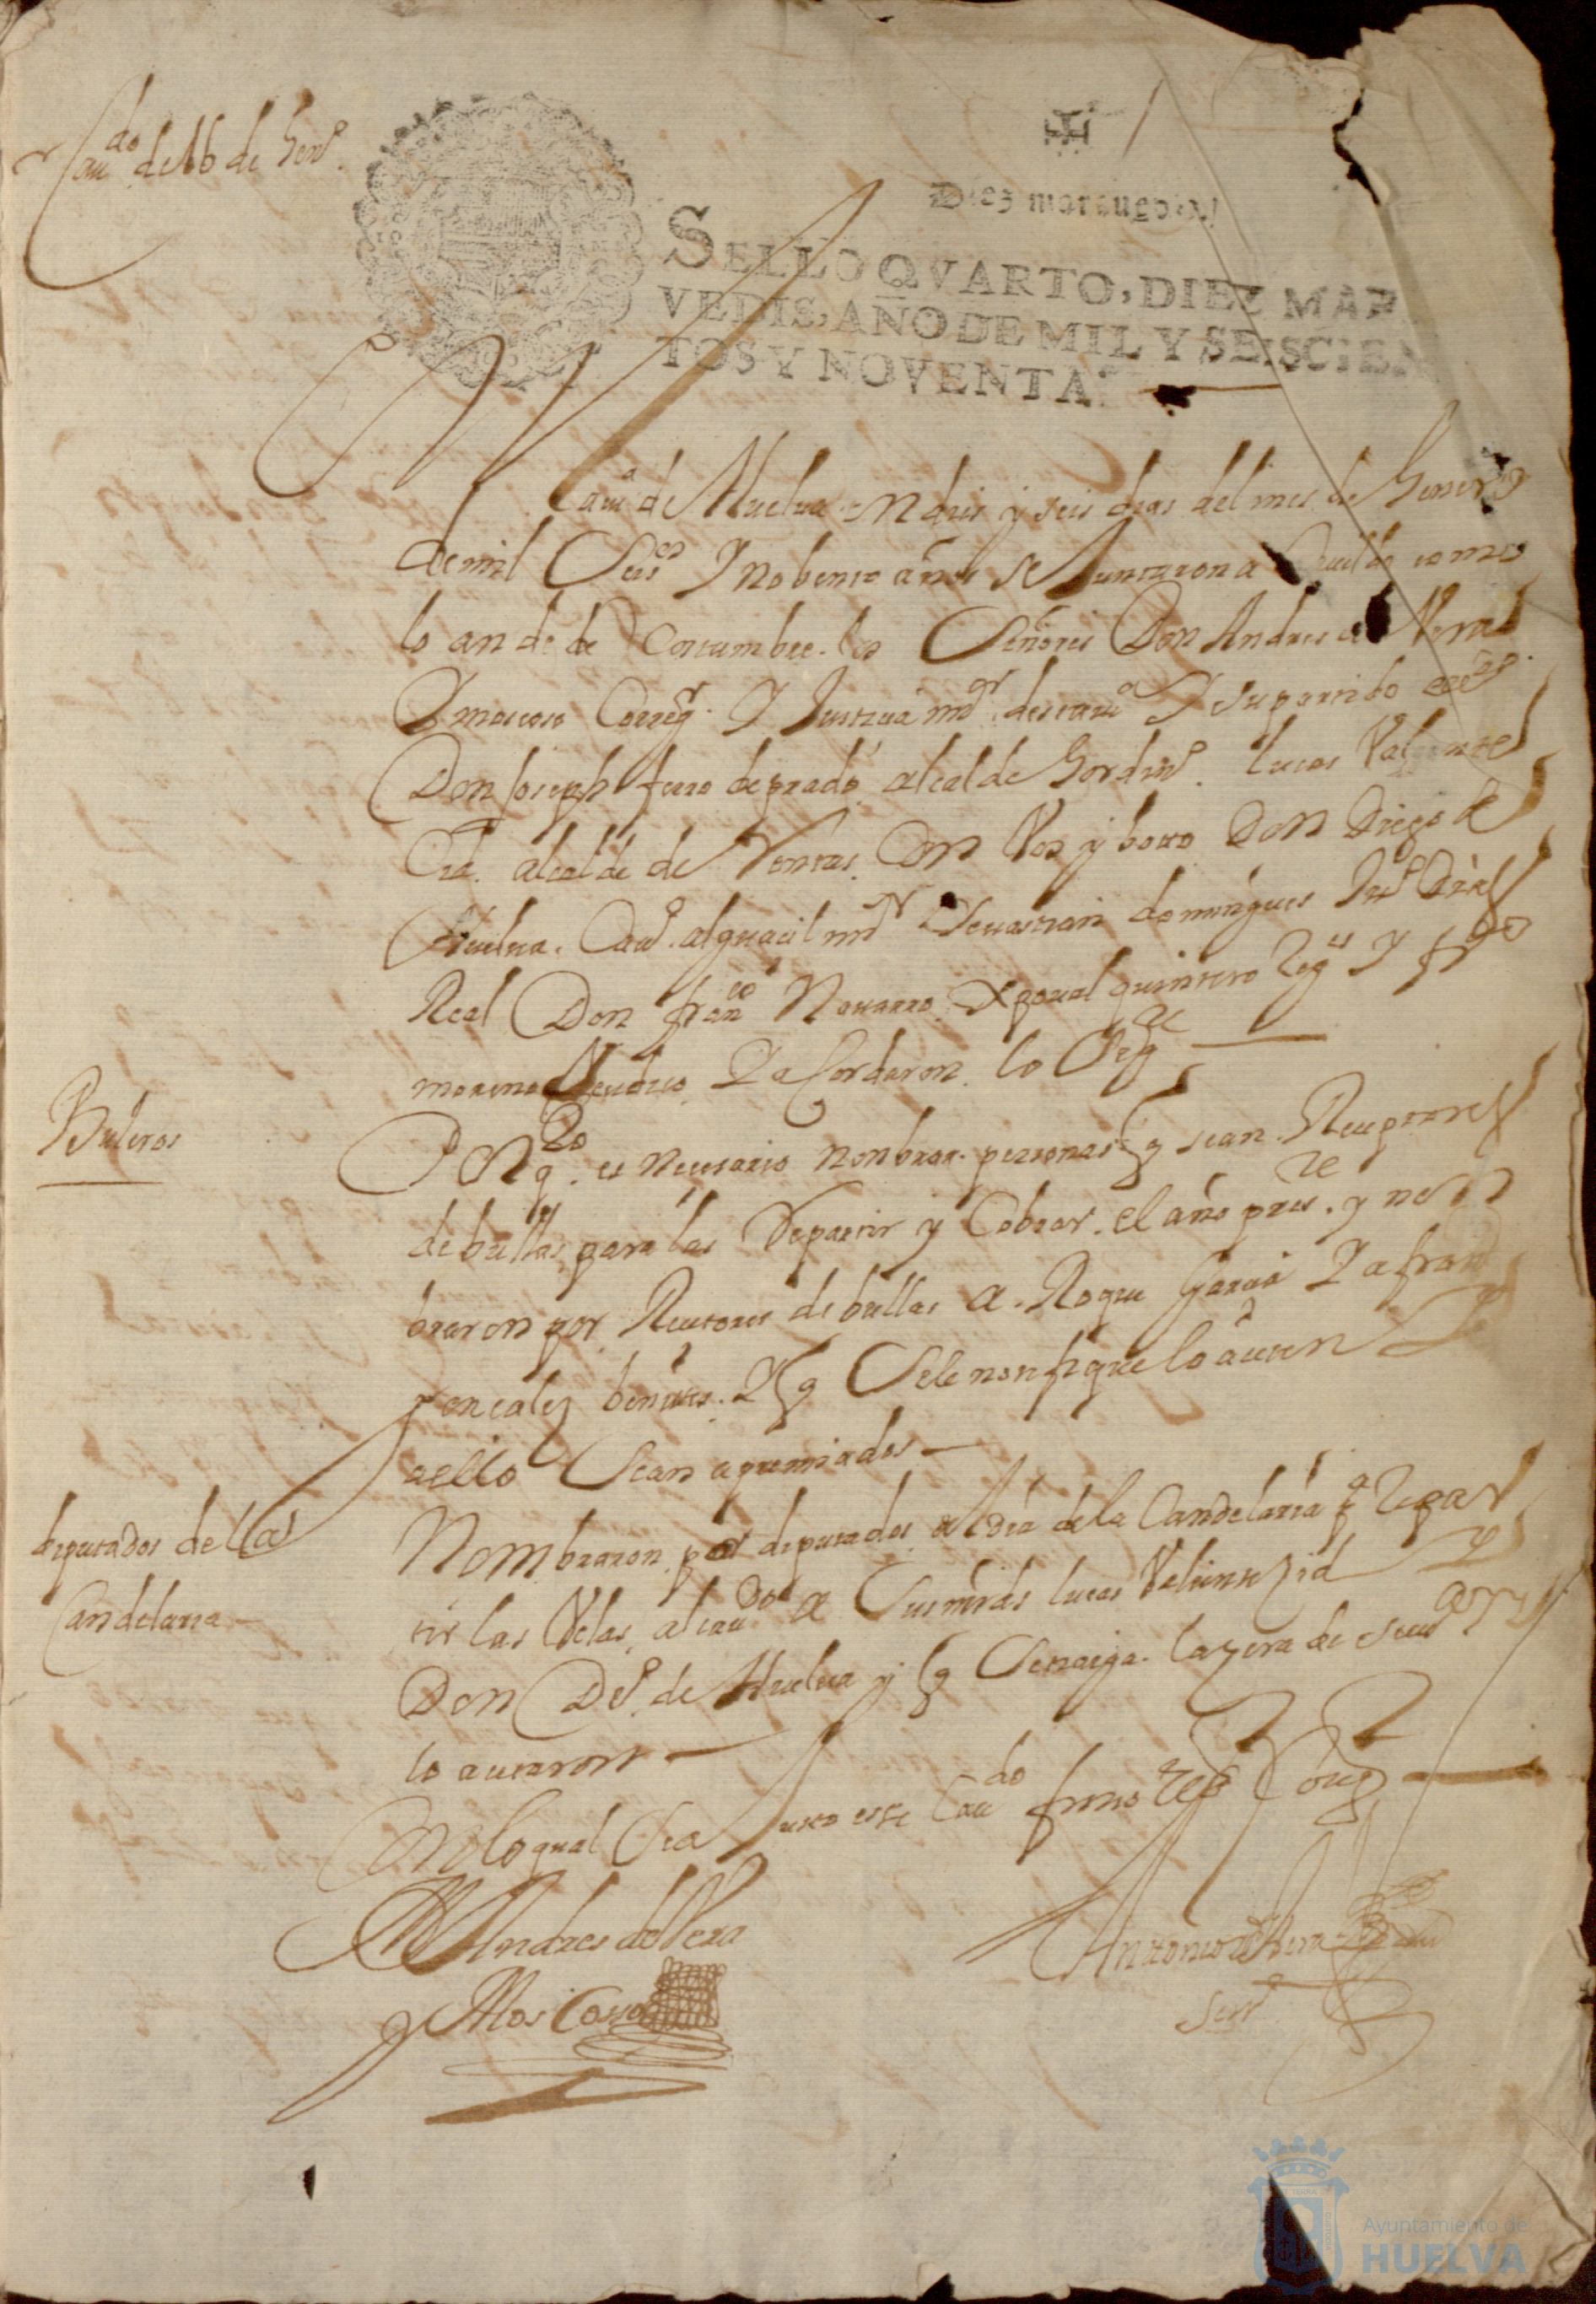 Cau.do de 16 de Genº.
Diez marauedis
SELLO QVARTO, DIEZ MAR
VEDIS, AÑO DE MIL Y SEISCIEN
TOS Y NOVENTA.
En la uiª de Huelua En dies y seis dias del mes de Genero
de mil Seisos Y nobenta años se Juntaron a Cauildo como
lo an de de Costumbre. los Señores Don Andres de Vera
Y moscoso Corregr. Y Justicia mor. desta uiª Y su partido
Don Joseph fero de prado alcalde hordinº. lucas Valiente
Cid. alcalde de Ventas. Con Voz y boto Don Diego de
Huelua. Cauº. alguacil mr Seuastian domingues Juº Dias
Real Don franco Nauarro Xpoual quintero Reges Y frco
moreno Sendico Y acordaron. lo Sigte
Buleros
Por qdo. es Necesario nonbrar. personas q sean. Receptores
de bullas para las Repartir y Cobrar. el año preste. y non
braron por Rectores de bullas a. Roque Garcia Y a fran
Goncales benites. Y q Se le notifique lo acten Y
a ello Sean apremiados
diputados de la
Candelaria
Nombraron por diputados al dia de la Candelaria pª Repar
tir las Velas al caudo a Sus mrds lucas Valiente Zid Y
Don Dº. de Huelua y q Se traiga. la zera de Seuª
lo acordaron
Con lo qual Sea Justo este Caudo firmo
Andres de Vera
y Moscoso
Antonio de Rera
Scriº
Ayuntamiento de
HUELVA